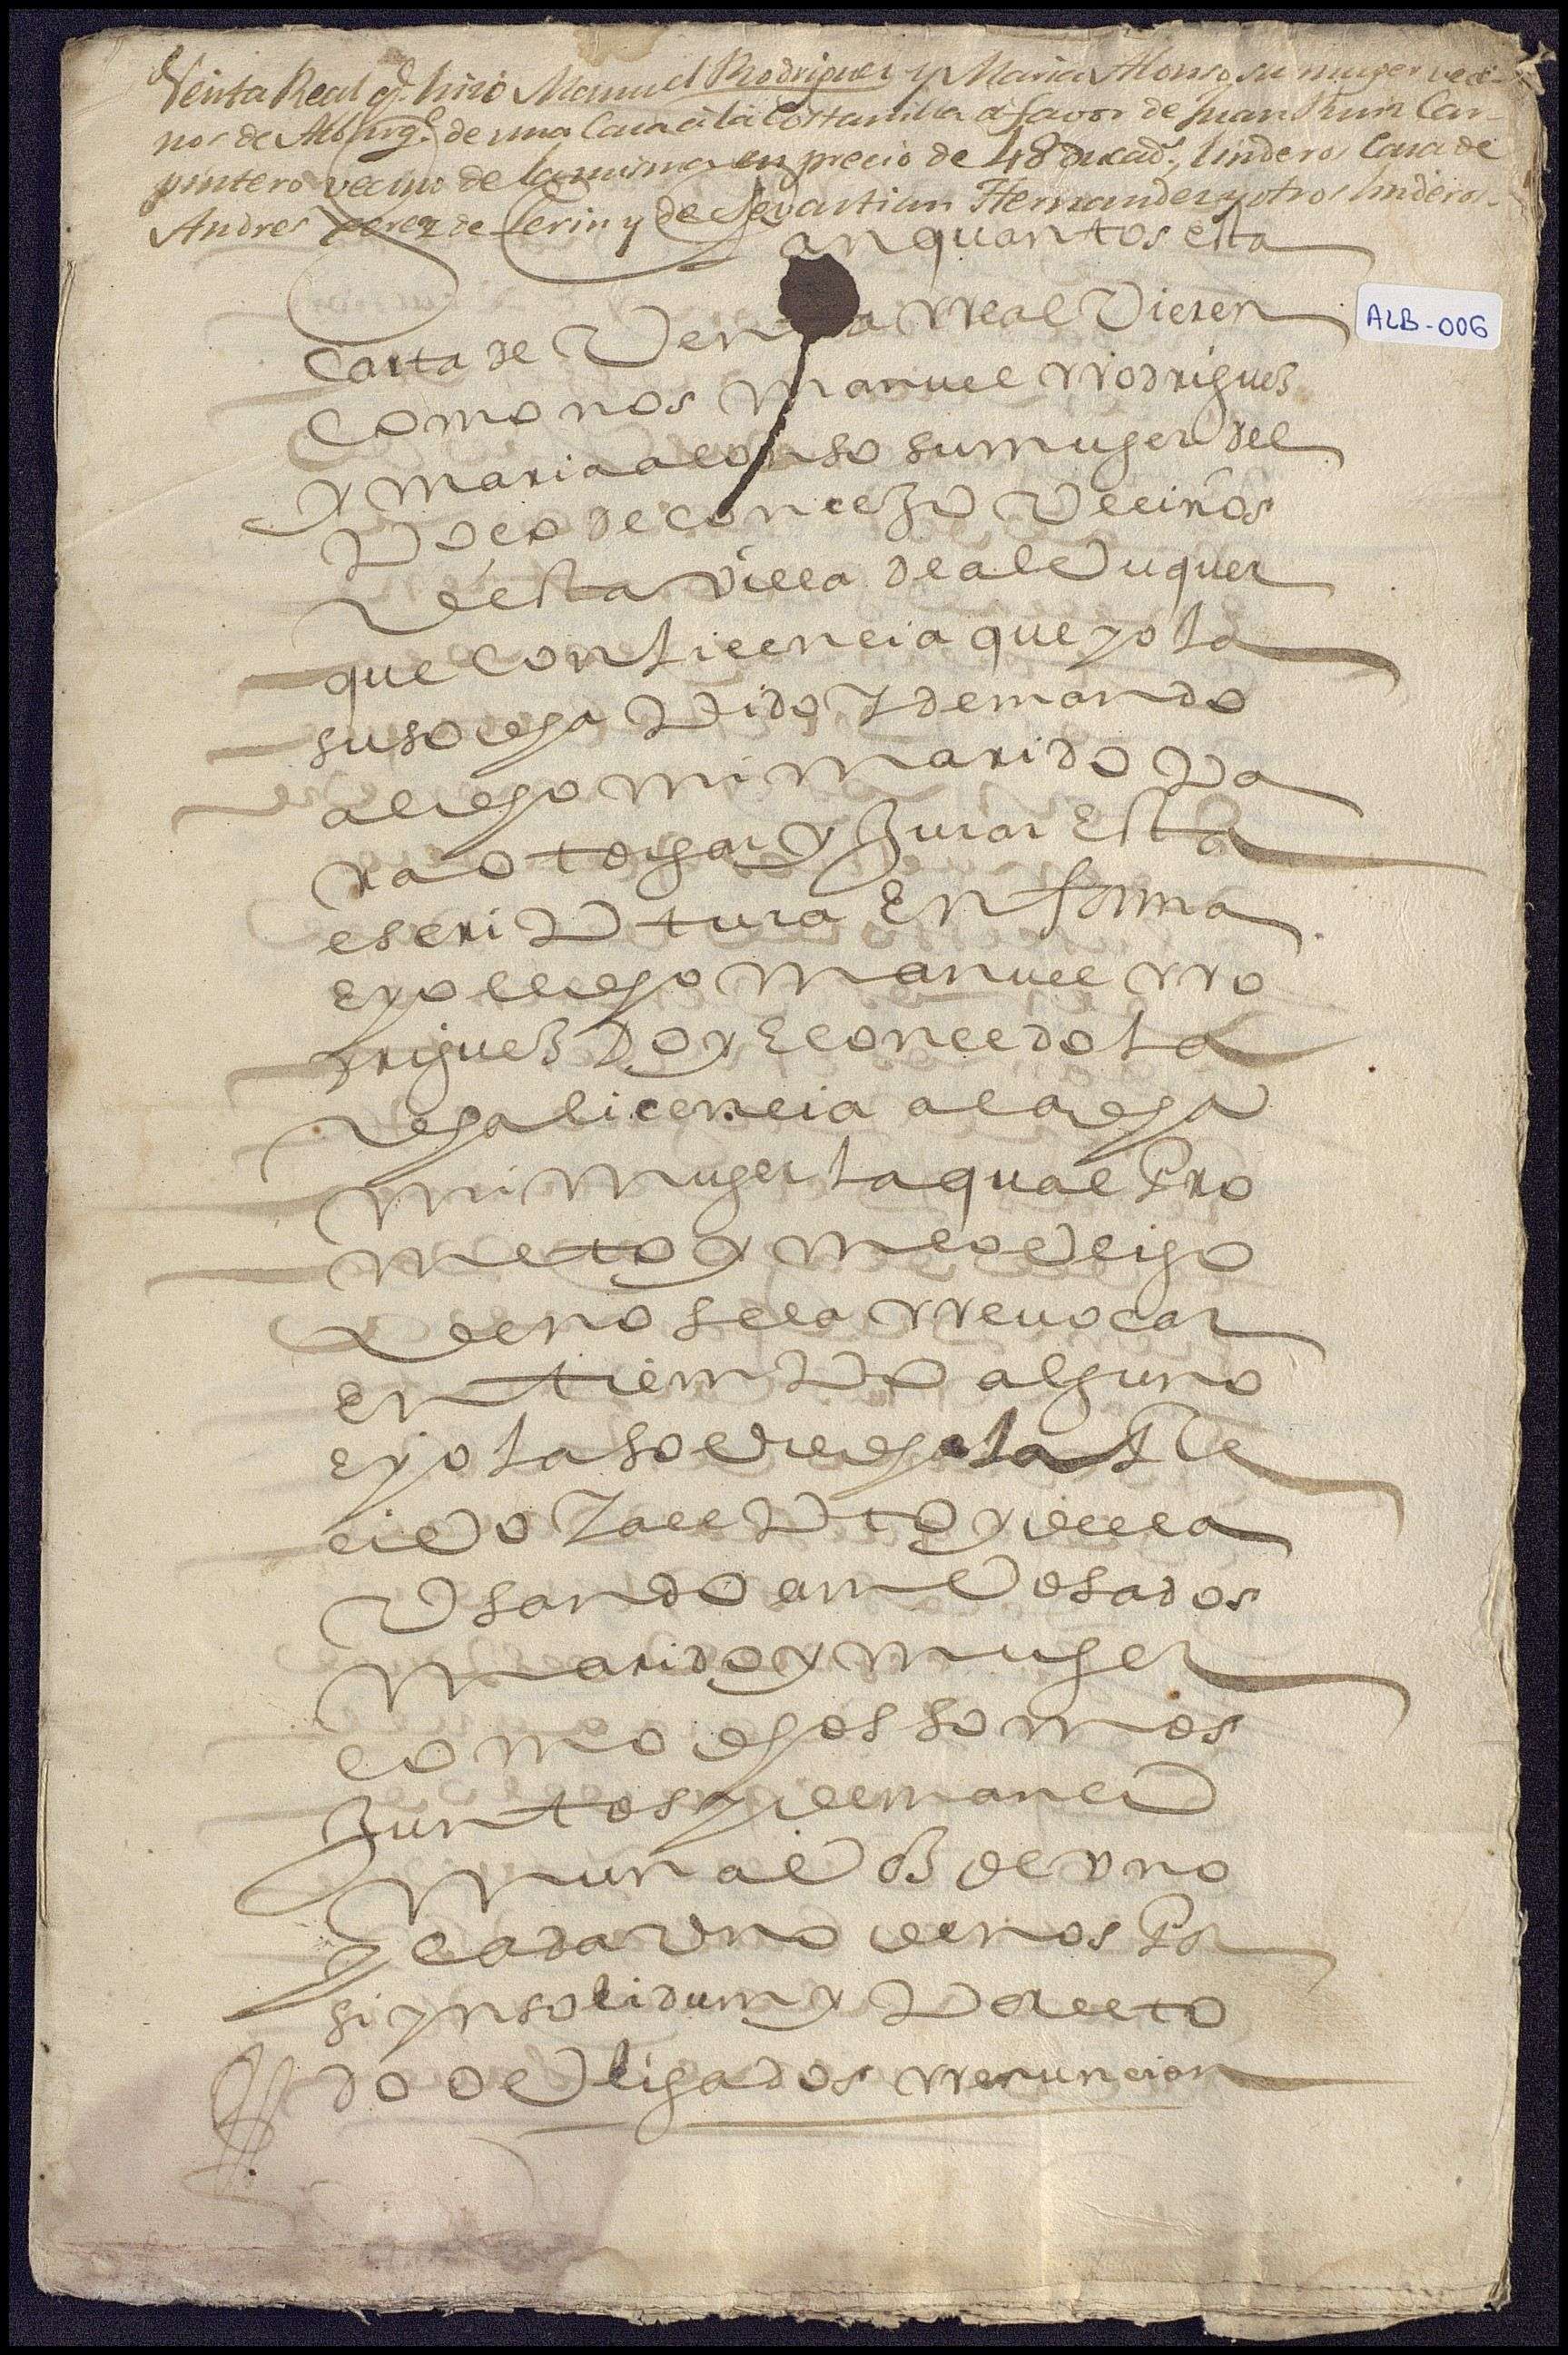 Venta Real q.e hizo Manuel Rodriguez y Maria Alonso su muger veci-
nos de Alburq.e de una Casa a la Costanilla a favor de Juan Ruiz Car-
pintero vecino de la misma en precio de 48 ducad.s, linderos Casa de
Andres Perez de Lerin y de Sevastian Hernandez y otros linderos.
an quantos esta
carta de Venta rreal Vieren
como nos manuel rrodriguez
y maria alonso su muger del
Poço de conceJo Vecinos
de esta villa de alburquer
que con licencia que yo la
suso dcha Pido y demando
al dcho mi marido Pa
ra otorgar y Jurar Esta
escriPtura En forma
e yo el dcho manuel rro
driguez doy e concedo la
dcha licencia a la dcha
mi muger la qual Pro
meto y me obligo
de no se la rrevocar
en tiemPo alguno
e yo la sobre dcha la rre
cibo y acePto y de ella
Usando ambos a dos
marido y muger
como dchos somos
Juntos y de mancó
mun a boz de uno
y cada uno de nos Por
si ynsolidum y Por el to
do obligados rrenuncian
ALB-006